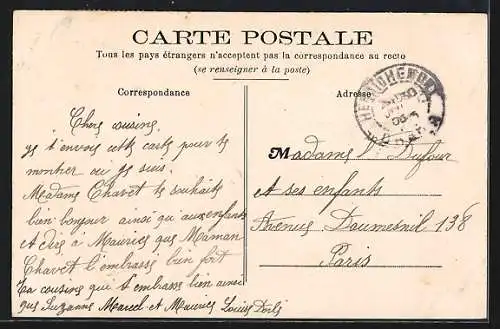 CARTE POSTALE
Tous les pays étrangers n'acceptent pas la correspondance au recto
(se renseigner à la poste)
Correspondance
Adresse
Chère cousine,
je t'envois cette carte pour te
montrer où je suis.
Madame Chavet te souhaite
bien bonjour ainsi qu'aux enfants
et dis à Maurice que Maman
Chavet l'embrasse bien fort
Ta cousine qui t'embrasse bien ainsi
que Suzanne Marcel et Maurice Louise
Madame Dufour
et ses enfants
Avenue Daumesnil 138
Paris